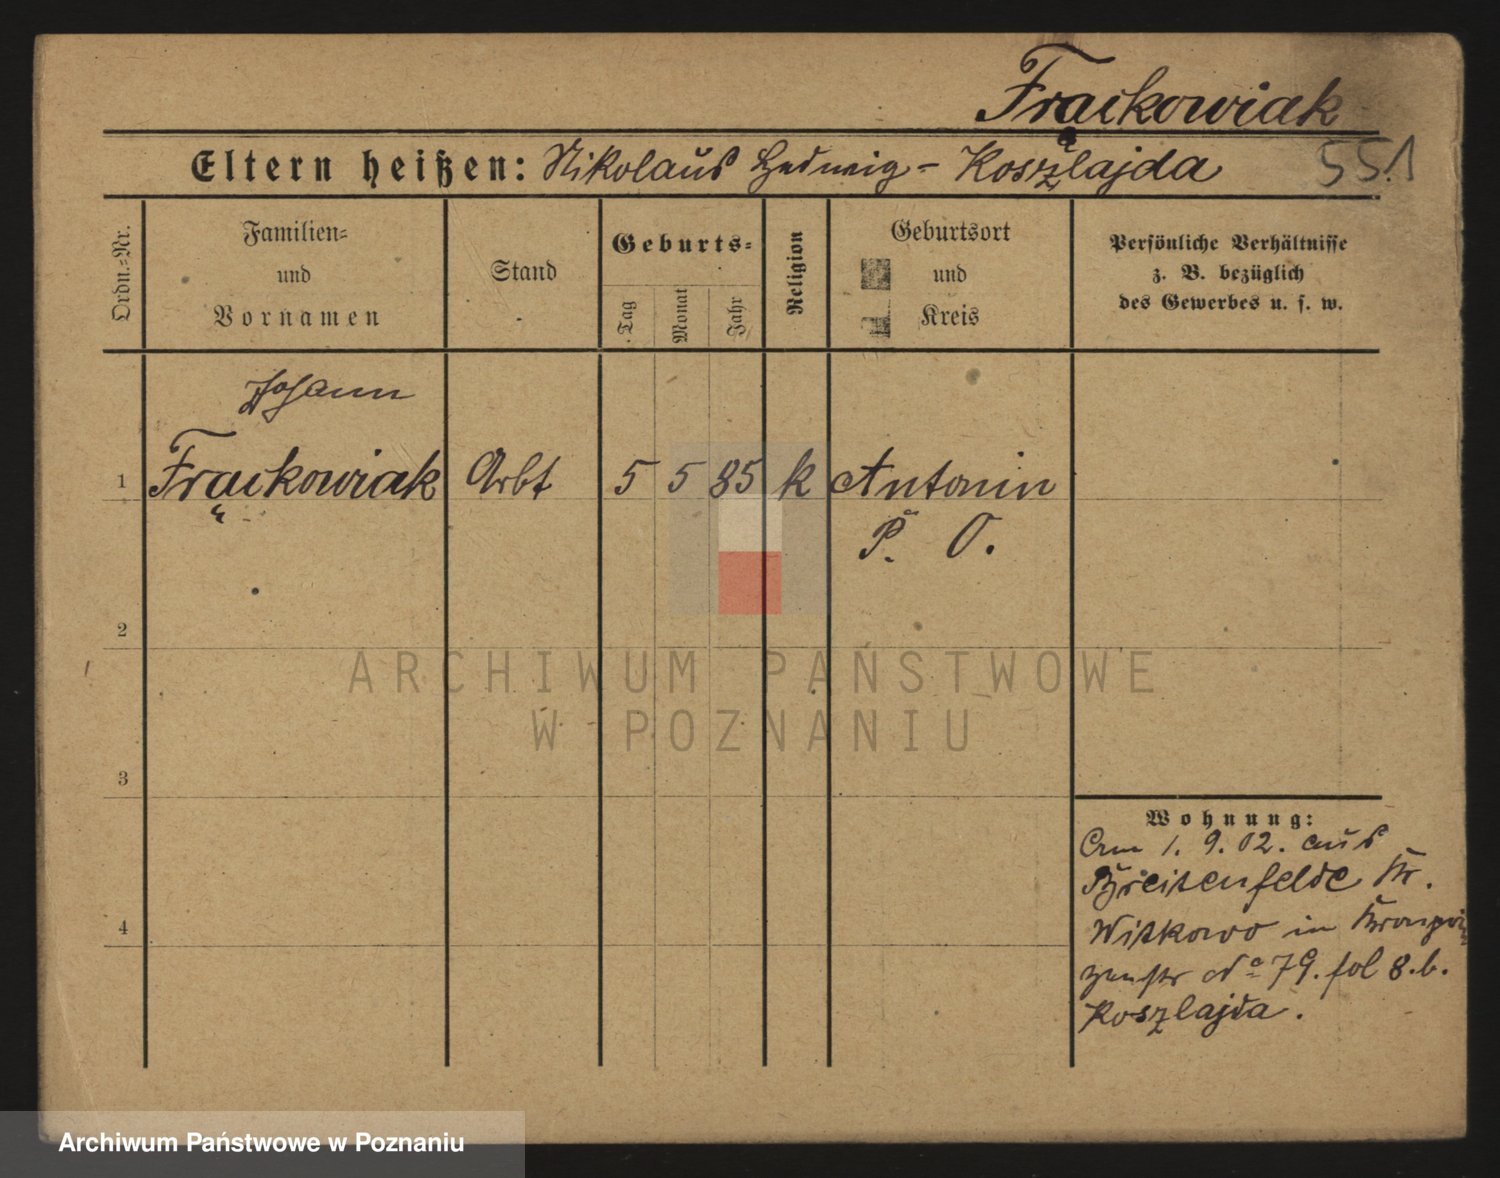 Frąckowiak
Eltern heißen: Nikolaus Hedwig - Koszlajda
551
Ordn.-Nr.
Familien-
und
Vornamen
Stand
Geburts-
Tag
Monat
Jahr
Religion
Geburtsort
und
Kreis
Persönliche Verhältnisse
z. B. bezüglich
des Gewerbes u. s. w.
Johann
1 Frąckowiak Arbt 5 5 85 k Antonin
P. O.
2
3
4
Wohnung:
Am 1. 9. 02. aus
Breitenfelde Kr.
Witkowo in Kronprin
zenstr No 79. fol 8. b.
Koszlajda.
ARCHIWUM PAŃSTWOWE
W POZNANIU
Archiwum Państwowe w Poznaniu